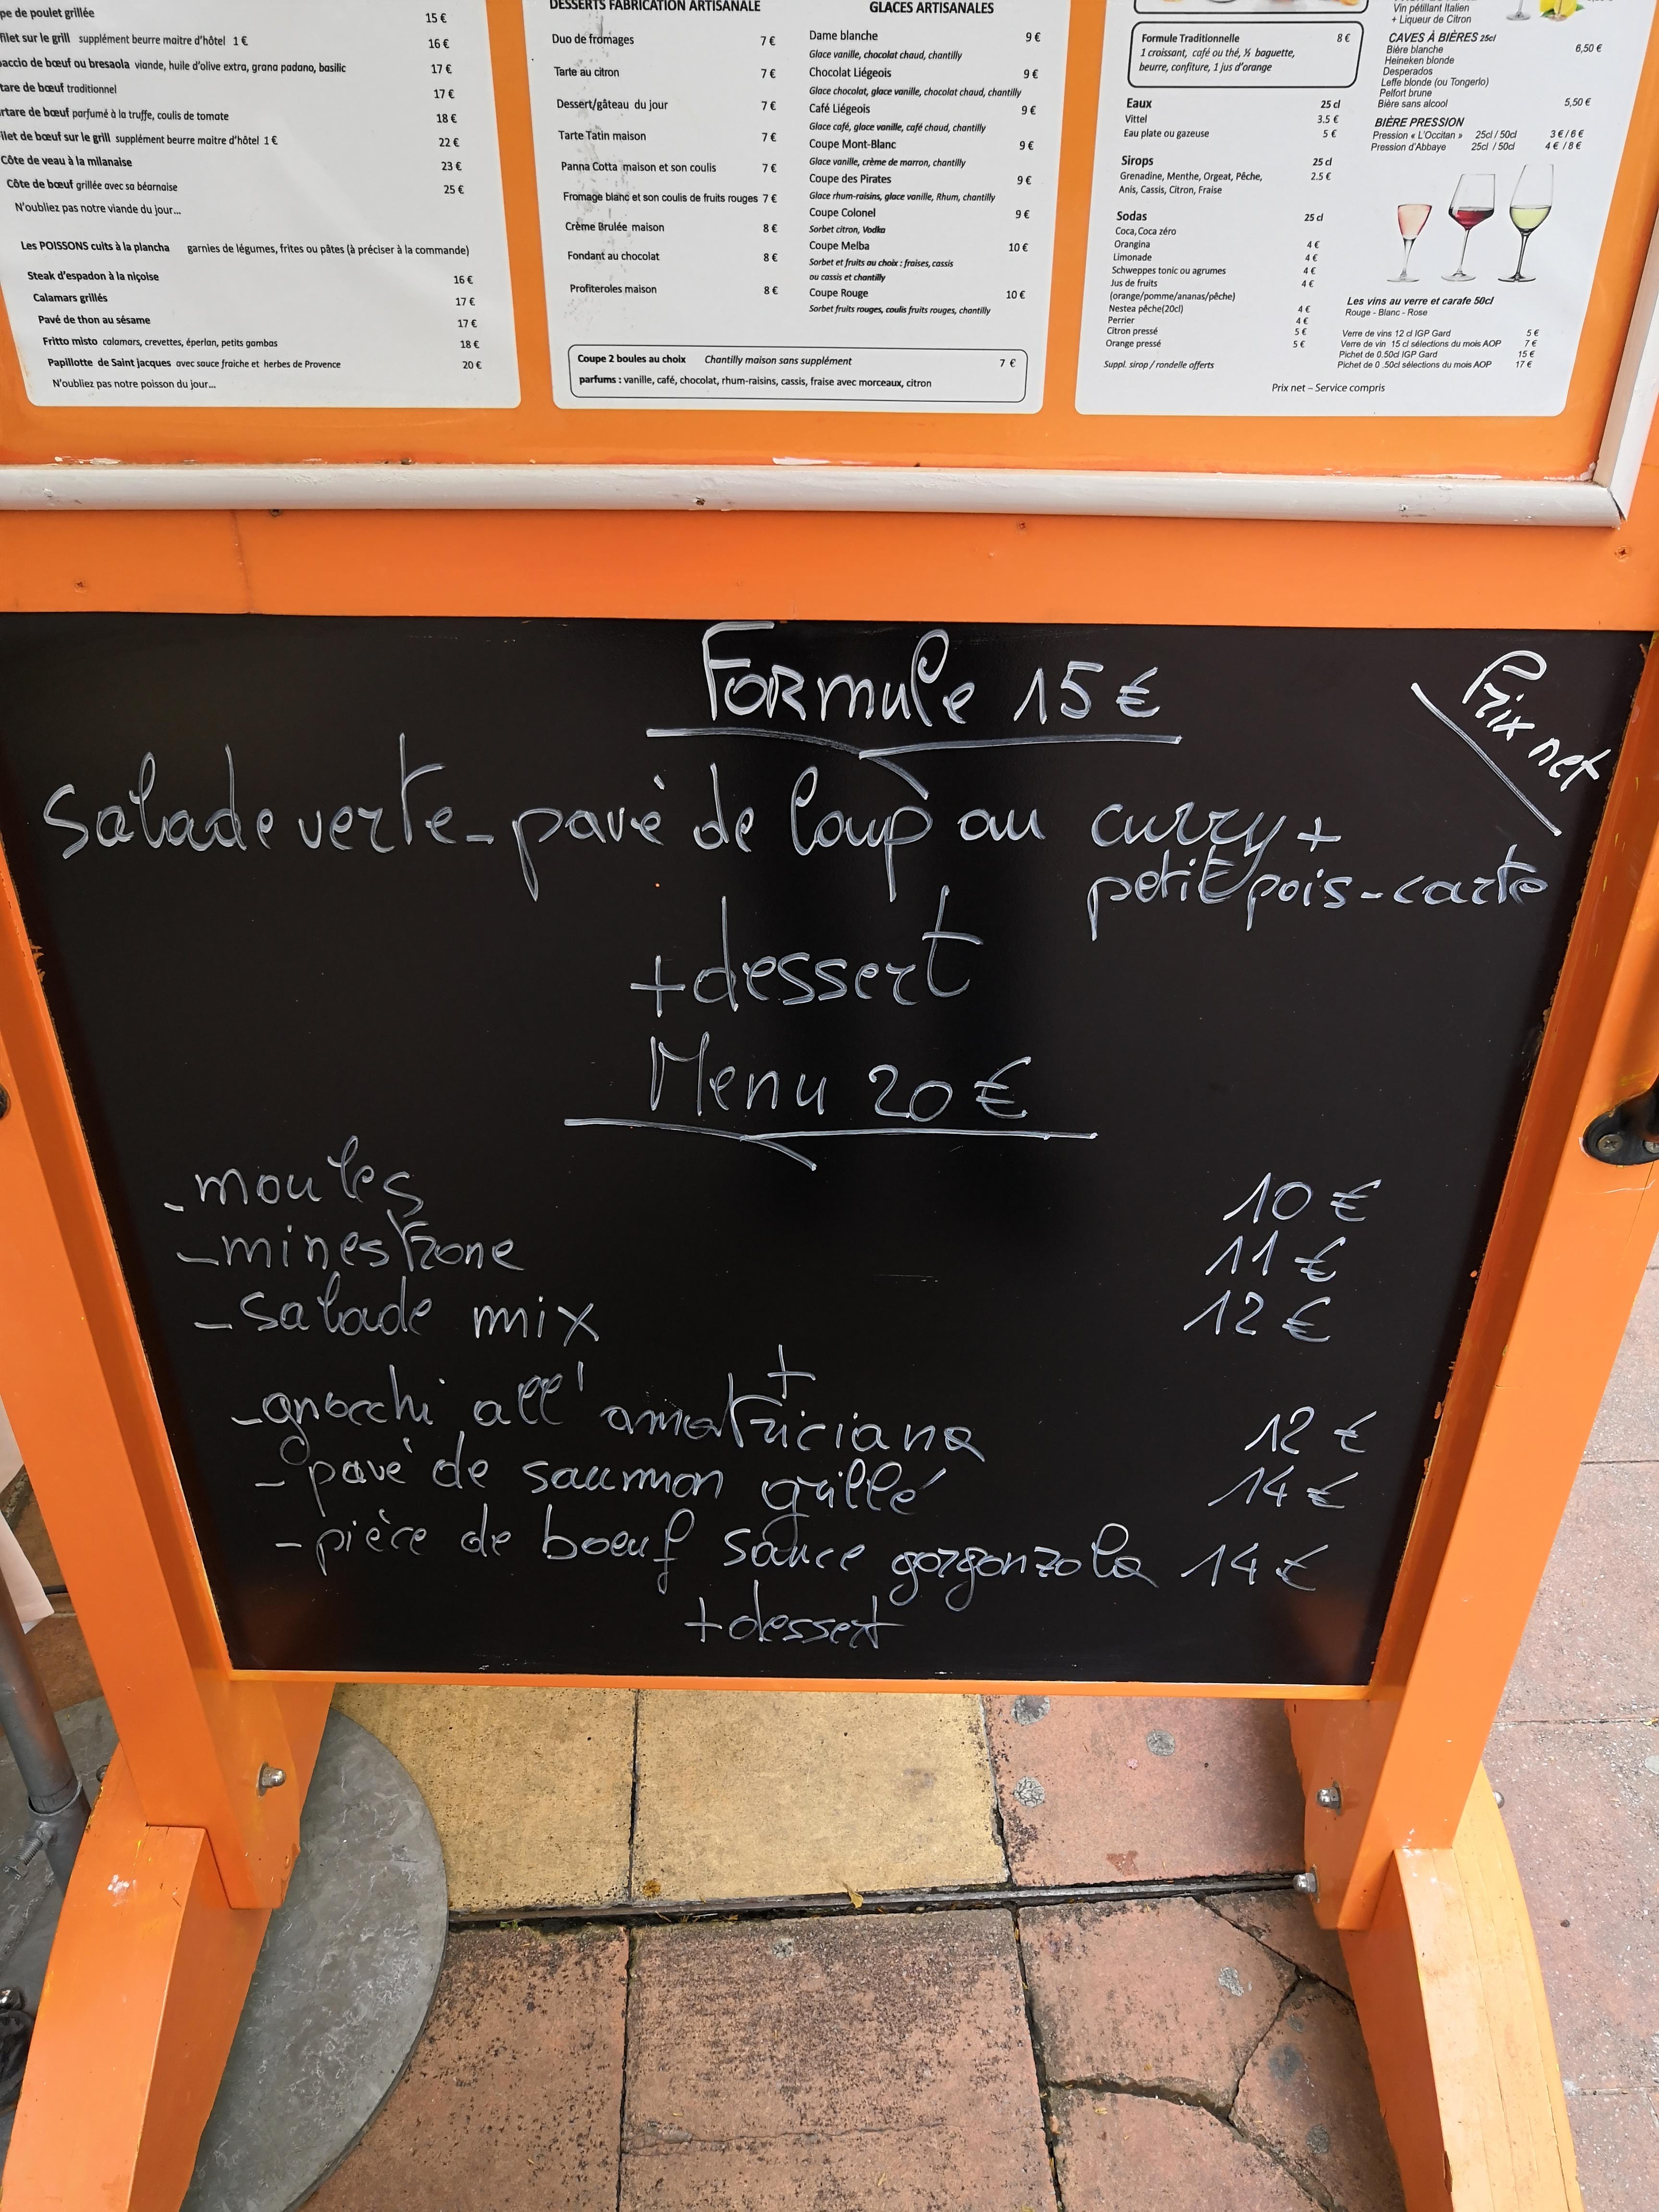 pe de poulet grillée 15 €
filet sur le grill supplément beurre maitre d'hôtel 1 € 16 €
accio de bœuf ou bresaola viande, huile d'olive extra, grana padano, basilic 17 €
tare de bœuf traditionnel 17 €
rtare de bœuf parfumé à la truffe, coulis de tomate 18 €
ilet de bœuf sur le grill supplément beurre maitre d'hôtel 1 € 22 €
Côte de veau à la milanaise 23 €
Côte de bœuf grillée avec sa béarnaise 25 €
N'oubliez pas notre viande du jour...
Les POISSONS cuits à la plancha garnies de légumes, frites ou pâtes (à préciser à la commande)
Steak d'espadon à la niçoise 16 €
Calamars grillés 17 €
Pavé de thon au sésame 17 €
Fritto misto calamars, crevettes, éperlan, petits gambas 18 €
Papillotte de Saint jacques avec sauce fraiche et herbes de Provence 20 €
N'oubliez pas notre poisson du jour...
DESSERTS FABRICATION ARTISANALE
Duo de fromages 7 €
Tarte au citron 7 €
Dessert/gâteau du jour 7 €
Tarte Tatin maison 7 €
Panna Cotta maison et son coulis 7 €
Fromage blanc et son coulis de fruits rouges 7 €
Crème Brulée maison 8 €
Fondant au chocolat 8 €
Profiteroles maison 8 €
GLACES ARTISANALES
Dame blanche 9 €
Glace vanille, chocolat chaud, chantilly
Chocolat Liégeois 9 €
Glace chocolat, glace vanille, chocolat chaud, chantilly
Café Liégeois 9 €
Glace café, glace vanille, café chaud, chantilly
Coupe Mont-Blanc 9 €
Glace vanille, crème de marron, chantilly
Coupe des Pirates 9 €
Glace rhum-raisins, glace vanille, Rhum, chantilly
Coupe Colonel 9 €
Sorbet citron, Vodka
Coupe Melba 10 €
Sorbet et fruits au choix : fraises, cassis
ou cassis et chantilly
Coupe Rouge 10 €
Sorbet fruits rouges, coulis fruits rouges, chantilly
Coupe 2 boules au choix Chantilly maison sans supplément 7 €
parfums : vanille, café, chocolat, rhum-raisins, cassis, fraise avec morceaux, citron
Formule Traditionnelle 8 €
1 croissant, café ou thé, ½ baguette,
beurre, confiture, 1 jus d'orange
Eaux 25 cl
Vittel 3.5 €
Eau plate ou gazeuse 5 €
Sirops 25 cl
Grenadine, Menthe, Orgeat, Pêche, 2.5 €
Anis, Cassis, Citron, Fraise
Sodas 25 cl
Coca, Coca zéro
Orangina 4 €
Limonade 4 €
Schweppes tonic ou agrumes 4 €
Jus de fruits 4 €
(orange/pomme/ananas/pêche)
Nestea pêche(20cl) 4 €
Perrier 4 €
Citron pressé 5 €
Orange pressé 5 €
Suppl. sirop / rondelle offerts
Vin pétillant Italien
+ Liqueur de Citron
CAVES À BIÈRES 25cl
Bière blanche 6,50 €
Heineken blonde
Desperados
Leffe blonde (ou Tongerlo)
Pelfort brune
Bière sans alcool 5,50 €
BIÈRE PRESSION
Pression « L'Occitan » 25cl / 50cl 3 € / 6 €
Pression d'Abbaye 25cl / 50cl 4 € / 8 €
Les vins au verre et carafe 50cl
Rouge - Blanc - Rose
Verre de vins 12 cl IGP Gard 5 €
Verre de vin 15 cl sélections du mois AOP 7 €
Pichet de 0.50cl IGP Gard 15 €
Pichet de 0 .50cl sélections du mois AOP 17 €
Prix net – Service compris
Formule 15 €
Prix net
Salade verte - pavé de loup au curry +
petit pois - carte
+ dessert
Menu 20 €
- moules 10 €
- minestrone 11 €
- salade mix 12 €
+
- gnocchi all' amatriciana 12 €
- pavé de saumon grillé 14 €
- pièce de boeuf sauce gorgonzola 14 €
+ dessert